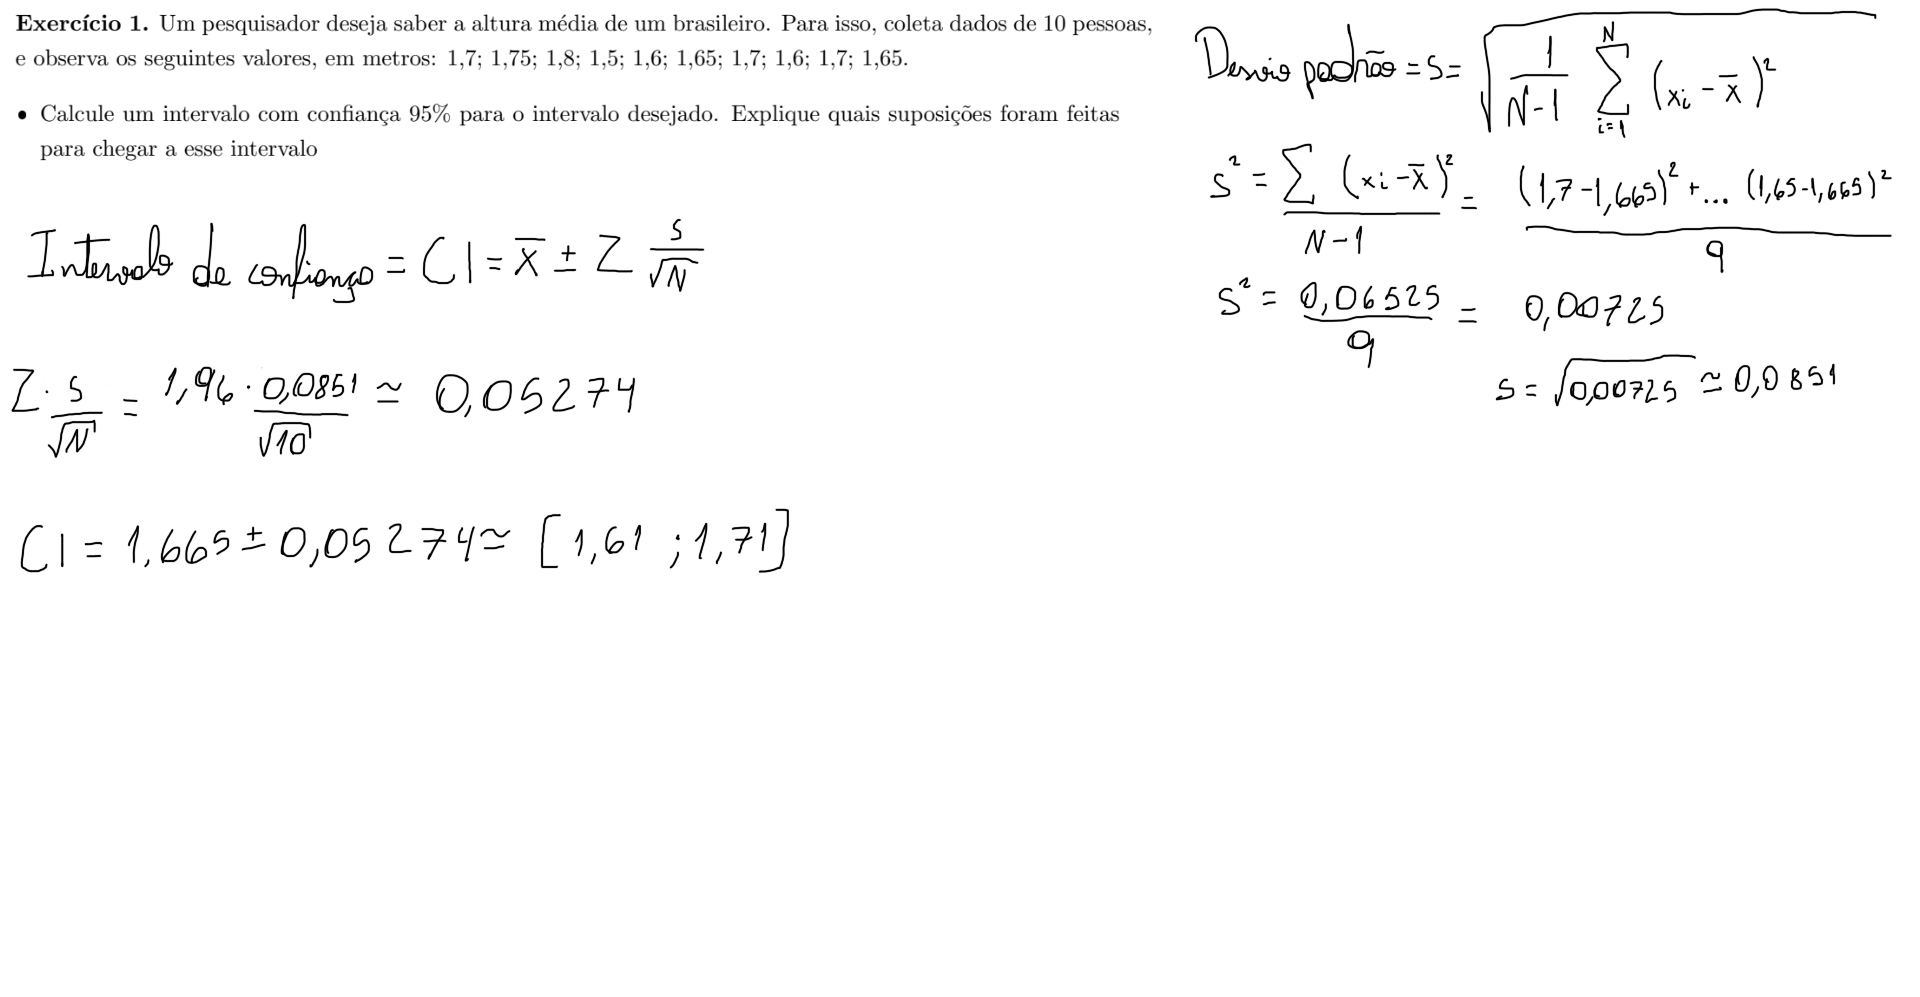 Exercício 1. Um pesquisador deseja saber a altura média de um brasileiro. Para isso, coleta dados de 10 pessoas,
e observa os seguintes valores, em metros: 1,7; 1,75; 1,8; 1,5; 1,6; 1,65; 1,7; 1,6; 1,7; 1,65.
• Calcule um intervalo com confiança 95% para o intervalo desejado. Explique quais suposições foram feitas
para chegar a esse intervalo
Intervalo de confiança = CI = x̄ ± Z s/√N
Z · s/√N = 1,96 · 0,0851/√10 ≃ 0,05274
CI = 1,665 ± 0,05274 ≃ [1,61 ; 1,71]
Desvio padrão = S = √(1/(N-1) ∑_{i=1}^{N} (xi - x̄)²)
S² = ∑ (xi - x̄)² / (N-1) = ((1,7-1,665)² + ... (1,65-1,665)²) / 9
S² = 0,06525/9 = 0,00725
S = √0,00725 ≃ 0,0851